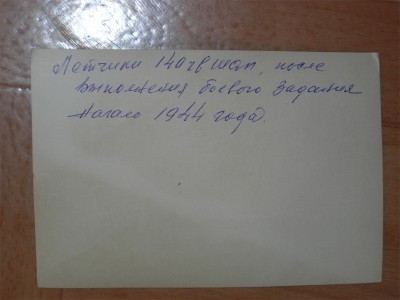 Летчики 140гв шап, после
выполнения боевого задания
Начало 1944 года.